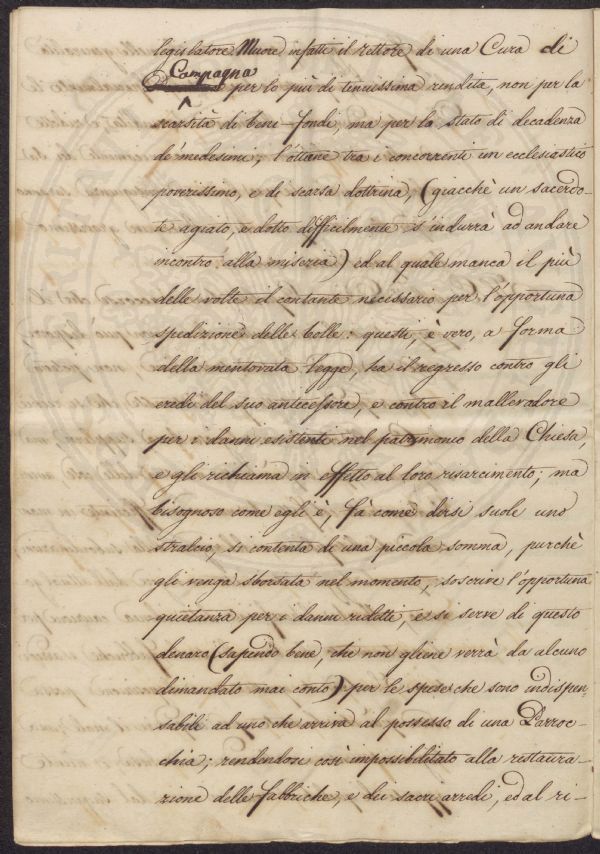 legislatore Muore infatti il rettore di una Cura di
Campagna
per lo più di tenuissima rendita, non per la
scarsità di beni-fondi, ma per lo stato di decadenza
de' medesimi; l'ottiene tra i concorrenti un ecclesiastico
poverissimo, e di scarsa dottrina, (giacchè un sacerdo-
te agiato, e dotto difficilmente s'indurrà ad andare
incontro alla miseria) ed al quale manca il più
delle volte il contante necessario per l'opportuna
spedizione delle bolle: questi, è vero, a forma
della mentovata legge, ha il regresso contro gli
eredi del suo antecessore, e contro il mallevadore
per i danni esistenti nel patrimonio della Chiesa,
e gli richiama in effetto al loro risarcimento; ma
bisognoso come egli è, fà come dirsi suole uno
stralcio, si contenta di una piccola somma, purchè
gli venga sborsata nel momento, soscrive l'opportuna
quietanza per i danni ridetti, e si serve di questo
denaro (sapendo bene, che non gliene verrà da alcuno
dimandato mai conto) per le spese che sono indispen-
sabili ad uno che arriva al possesso di una Parroc-
chia; rendendosi così impossibilitato alla restaura-
zione delle fabbriche, e dei sacri arredi, ed al ri-